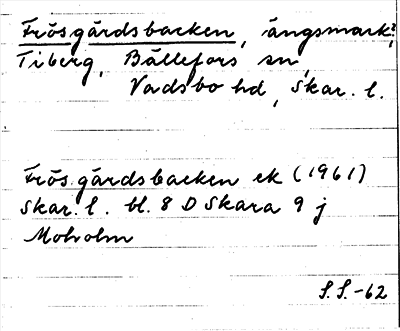 Frösgårdsbacken, ängsmark?,
Tiberg, Bällefors sn,
Vadsbo hd, Skar. l.
Frösgårdsbacken ek (1961)
Skar. l. bl. 8 D Skara 9 j
Moholm
S.S.-62